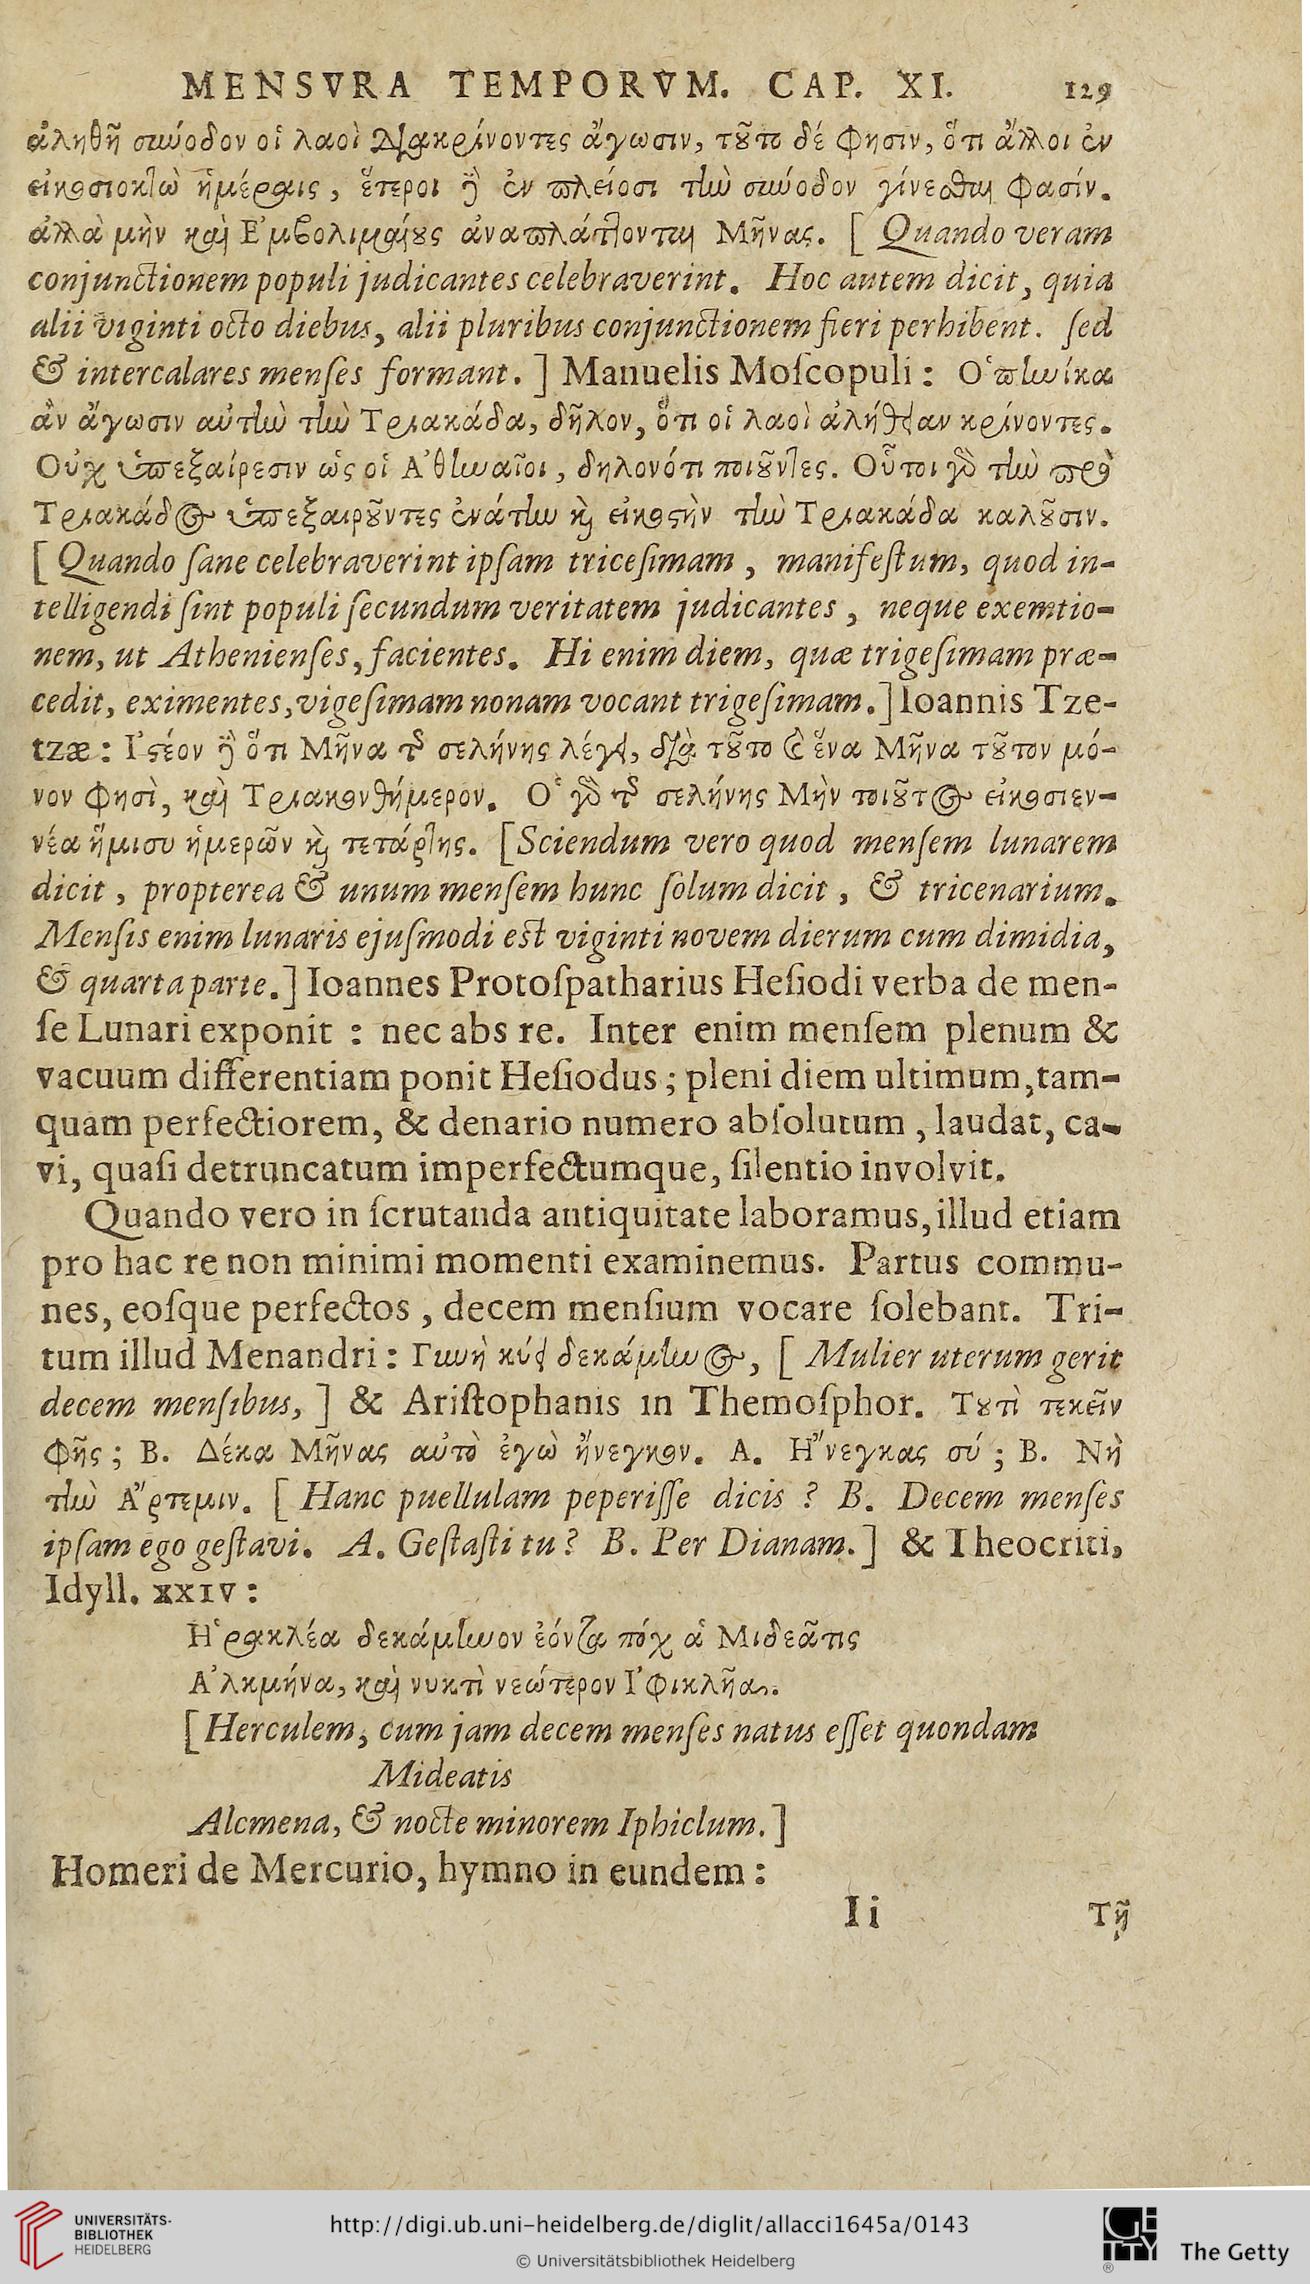 MENSVRA TEMPORVM. CAP. XI. 129
ἀληθῆ σύνοδον οἱ λαοὶ διακρίνοντες ἄγωσιν, τοῦτο δέ φησιν, ὅτι ἄλλοι ἐν
εἰκοσιοκτὼ ἡμέραις, ἕτεροι δὲ ἐν πλείοσι τὴν σύνοδον γίνεσθαι φασίν.
ἀλλὰ μὴν καὶ Ἐμβολιμαίους ἀναπλάττονται Μῆνας. [ Quando veram
conjunctionem populi judicantes celebraverint. Hoc autem dicit, quia
alii viginti octo diebus, alii pluribus conjunctionem fieri perhibent. ſed
& intercalares menſes formant. ] Manuelis Moſcopuli : Ὁπηνίκα
ἂν ἄγωσιν αὐτὴν τὴν Τριακάδα, δῆλον, ὅτι οἱ λαοὶ ἀλήθειαν κρίνοντες.
Οὐχ ὑπεξαίρεσιν ὡς οἱ Ἀθηναῖοι, δηλονότι ποιοῦντες. Οὗτοι γὰρ τὴν πρὸ
Τριακάδος ὑπεξαιροῦντες ἐνάτην καὶ εἰκοστὴν τὴν Τριακάδα καλοῦσιν.
[ Quando ſane celebraverint ipſam triceſimam , manifeſtum, quod in-
telligendi ſint populi ſecundum veritatem judicantes , neque exemtio-
nem, ut Athenienſes, facientes. Hi enim diem, quæ trigeſimam præ-
cedit, eximentes, vigeſimam nonam vocant trigeſimam. ] Ioannis Tze-
tzæ : Ἰστέον δὲ ὅτι Μῆνα τῆς σελήνης λέγει, διὰ τοῦτο καὶ ἕνα Μῆνα τοῦτον μό-
νον φησὶ, καὶ Τριακονθήμερον. Ὁ γὰρ τῆς σελήνης Μὴν τοιοῦτος εἰκοσιεν-
νέα ἥμισυ ἡμερῶν καὶ τετάρτης. [ Sciendum vero quod menſem lunarem
dicit , propterea & unum menſem hunc ſolum dicit , & tricenarium.
Menſis enim lunaris ejuſmodi est viginti novem dierum cum dimidia,
& quarta parte. ] Ioannes Protoſpatharius Heſiodi verba de men-
ſe Lunari exponit : nec abs re. Inter enim menſem plenum &
vacuum differentiam ponit Heſiodus ; pleni diem ultimum, tam-
quam perfectiorem, & denario numero abſolutum , laudat, ca-
vi, quaſi detruncatum imperfectumque, ſilentio involvit.
Quando vero in ſcrutanda antiquitate laboramus, illud etiam
pro hac re non minimi momenti examinemus. Partus commu-
nes, eoſque perfectos , decem menſium vocare ſolebant. Tri-
tum illud Menandri : Γυνὴ κύει δεκάμηνος, [ Mulier uterum gerit
decem menſibus, ] & Ariſtophanis in Themoſphor. Τουτὶ τεκεῖν
φῄς ; Β. Δέκα Μῆνας αὐτὸ ἐγὼ ἤνεγκον. Α. Ἤνεγκας σύ ; Β. Νὴ
τὴν Ἄρτεμιν. [ Hanc puellulam peperiſſe dicis ? B. Decem menſes
ipſam ego geſtavi. A. Geſtaſti tu ? B. Per Dianam. ] & Theocriti,
Idyll. XXIV :
Ἡρακλέα δεκάμηνον ἐόντα πόχ ἁ Μιδεᾶτις
Ἀλκμήνα, καὶ νυκτὶ νεώτερον Ἰφικλῆα.
[ Herculem, cum jam decem menſes natus eſſet quondam
Mideatis
Alcmena, & nocte minorem Iphiclum. ]
Homeri de Mercurio, hymno in eundem :
Ii Τῇ
UNIVERSITÄTS-
BIBLIOTHEK
HEIDELBERG
http://digi.ub.uni-heidelberg.de/diglit/allacci1645a/0143
© Universitätsbibliothek Heidelberg
GETTY
®
The Getty